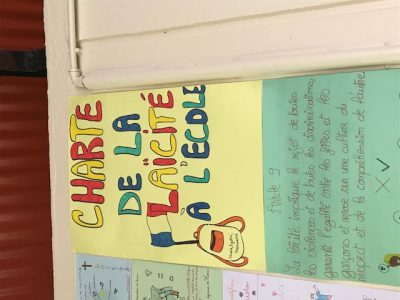 CHARTE
DE LA
LAÏCITÉ
À L'ÉCOLE
Article 9
La laïcité implique le rejet de toutes
les violences et de toutes les discriminations,
garantit l'égalité entre les filles et les
garçons et repose sur une culture du
respect et de la compréhension de l'autre.